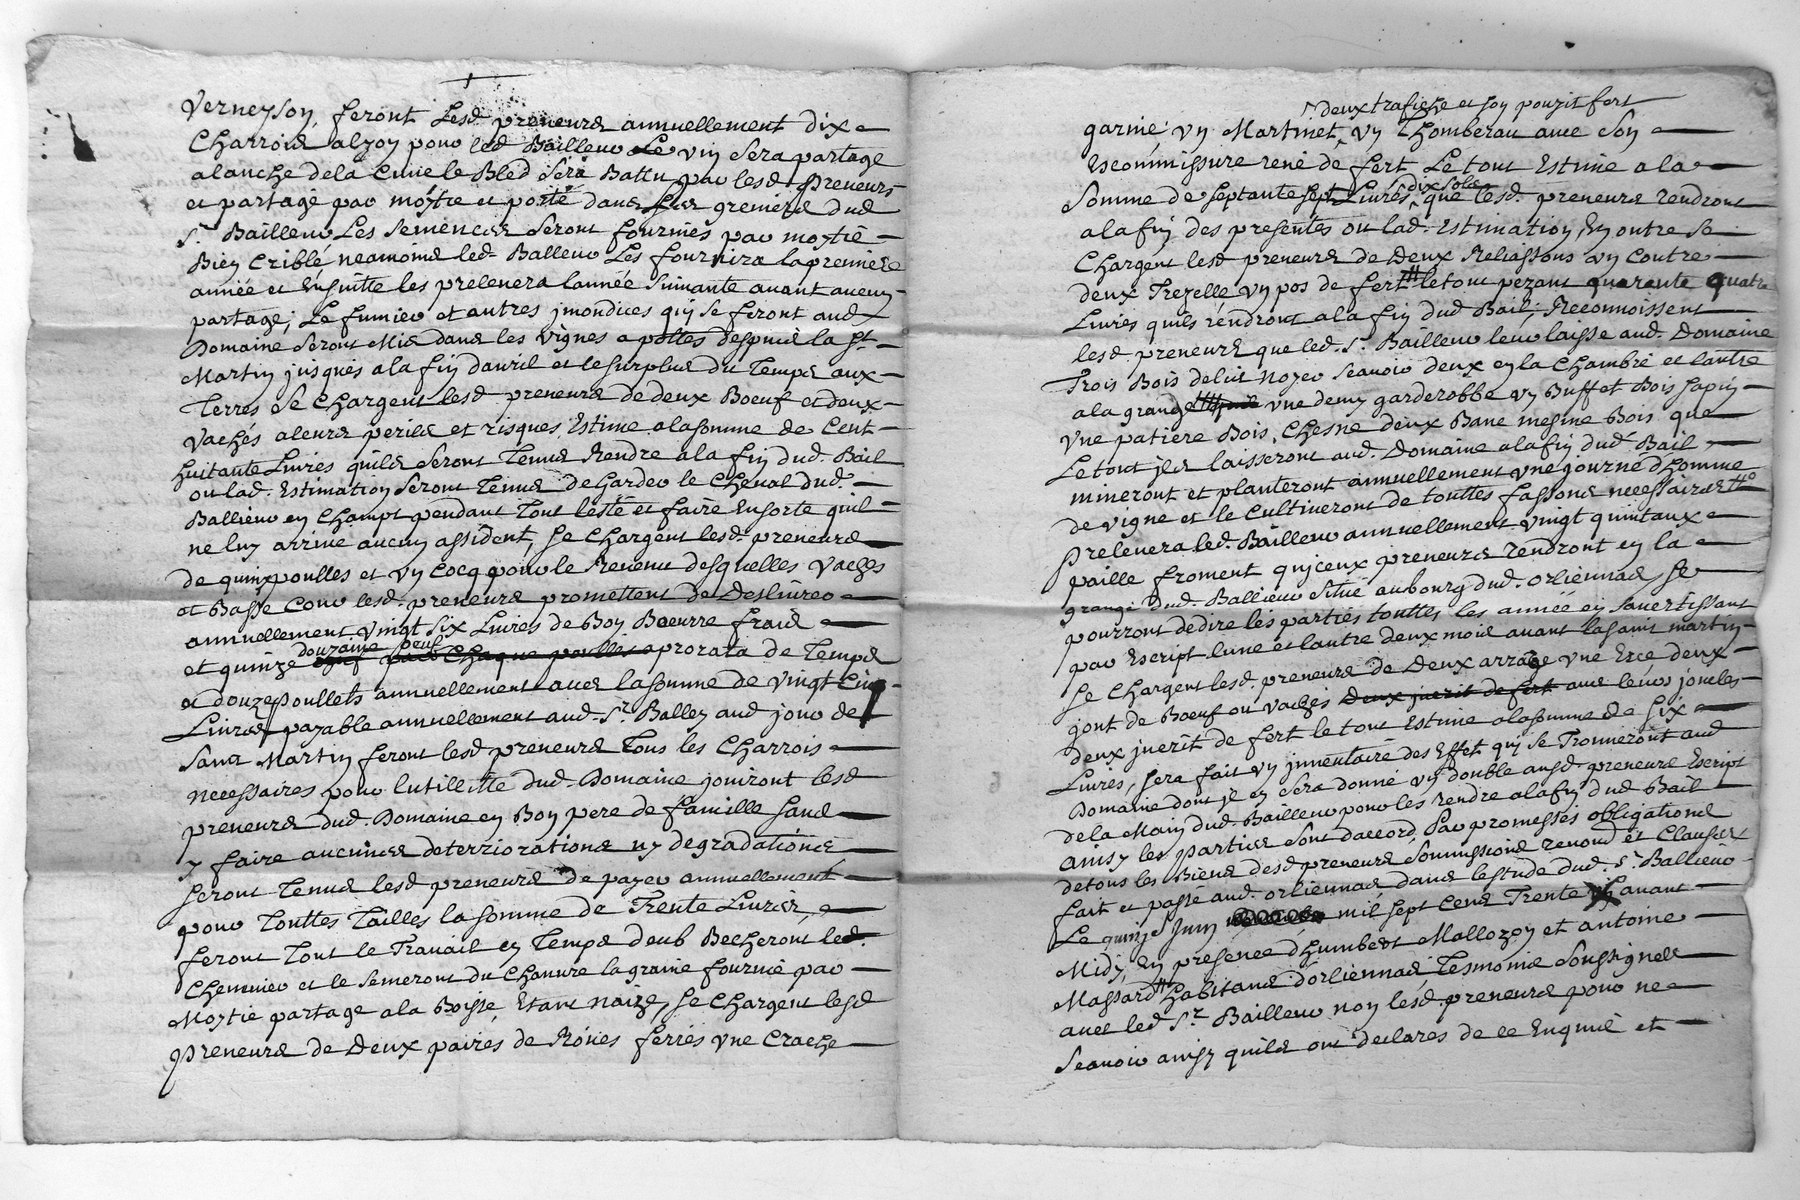 Verneyson, feront lesd. preneurs annuellement dix
Charrois alyon pour led Bailleur Le vin sera partagé
alanche dela Cuve le Bled sera Battu par lesd. Preneurs
et partagé par moytre et porté dans les greniers dud
Sr. Bailleur Les semences seront fournies par moytié
Bien Criblé neamoins led. Balleur Les fournira la premiere
année et Ensuitte les prelevera lannée suivante avant aucun
partage; Le fumier et autres jmondices qui se feront aud
Domaine seront Mis dans les vignes a portes despuis la St
Martin jusques ala fin davril et le surplus du Temps aux
Terres se Chargent lesd. preneurs de deux Boeuf et deux
Vachés aleurs perils et risques Estimé alasomme de Cent
huitante Livres quils seront Tenus Rendre ala fin dud. Bail
ou lad. Estimation seront Tenus de garder le Cheval dud.
Ballieur en Champt pendant Tout lesté et faire Ensorte quil
ne luy arrive aucun assident, se Chargent lesd. preneurs
de quinz poulles et un Cocq pour le Revenu desquelles vaches
et Basse Cour lesd. preneurs promettent de Deslivrer
annuellement vingt six Livres de Bon Boeurre frais
douzaine oeuf
et quinze Chaque poulles aprorata de Temps
et douze poullets annuellement avec lasomme de vingt Cinq
Livres payable annuellement aud. Sr. Balley aud jour de
Saint Martin feront lesd preneurs Tous les Charrois
necessaires pour lutillitté dud. Domaine jouiront lesd
preneurs dud. Domaine en Bon pere de famille sans
y faire aucunes deterriorations ny degradations
seront Tenus lesd preneurs de payer annuellement
pour Touttes Tailles la somme de Trente Livres,
feront Tout le Travail en Temps deub Becheront led.
Chenevier et le semeront du Chanvre la graine fournie par
Moytié partage ala Boisse Etant naizé, se Chargent lesd
Preneurs de Deux paires de Röues ferrés une Crache
deux trafiche et son pouzit fert
garnie un Martinet, un Thomberau avec son
Escommissure rené de fert Le tout Estimé ala
dix sols
Somme de septante sept Livres, que lesd. preneurs rendront
ala fin des presentes ou lad. Estimation, En outre se
Chargent lesd preneurs de Deux Reliassons un Coutre
deux Trezelle un pos de fert le tout pezant quarante quatre
Livres quils rendront ala fin dud Bail, Reconnoissent
lesd. preneurs que led. Sr. Bailleur leur laisse aud. Domaine
Trois Bois delit Noyer scavoir deux en la Chambre et lautre
ala grange une demy garderobbe un Buffet Bois sapin
une patière Bois Chesne deux Banc mesme Bois que
Le tout jls laisseront aud. Domaine alafin dud Bail
mineront et planteront annuellement une journé dhomme
de vigne et le Cultiveront de touttes fassons necessaires
Prelevera led. Bailleur annuellement vingt quintaux
paille froment quiceux preneurs rendront en la
grange dud. Ballieur situé aubourg dud. orliennas se
pourront dedire les parties touttes les année en savertissant
par Escript lune et lautre deux mois avant lasaint martin
se Chargent lesd. preneurs de Deux arrage une Erce deux
jout de Bœuf ou vaches deux juerit de fert avec leur joucles
deux juerit de fert le tout Estimé alasomme de six
Livres, sera fait un jnventaire des Effet qui se Trouveront aud
Domaine dont jl en sera donné un double ausd. preneurs Escript
dela Main dud. Bailleur pour les rendre alafin dud Bail
ainsy les parties sont daccord Par promesses obligations
detous les Biens desd preneurs soumissions renond et Clauses
fait et passé aud. orliennas dans lestude dud. Sr. Ballieur
Le quinze Juin mil sept Cens Trente avant
Midy, En presence dhumbert Mallozon et antoine
Massard habitans dorliennas Tesmoins soussignés
avec led Sr. Bailleur non lesd. preneurs pour ne
scavoir ainsy quils ont declarés de ce Enquis et